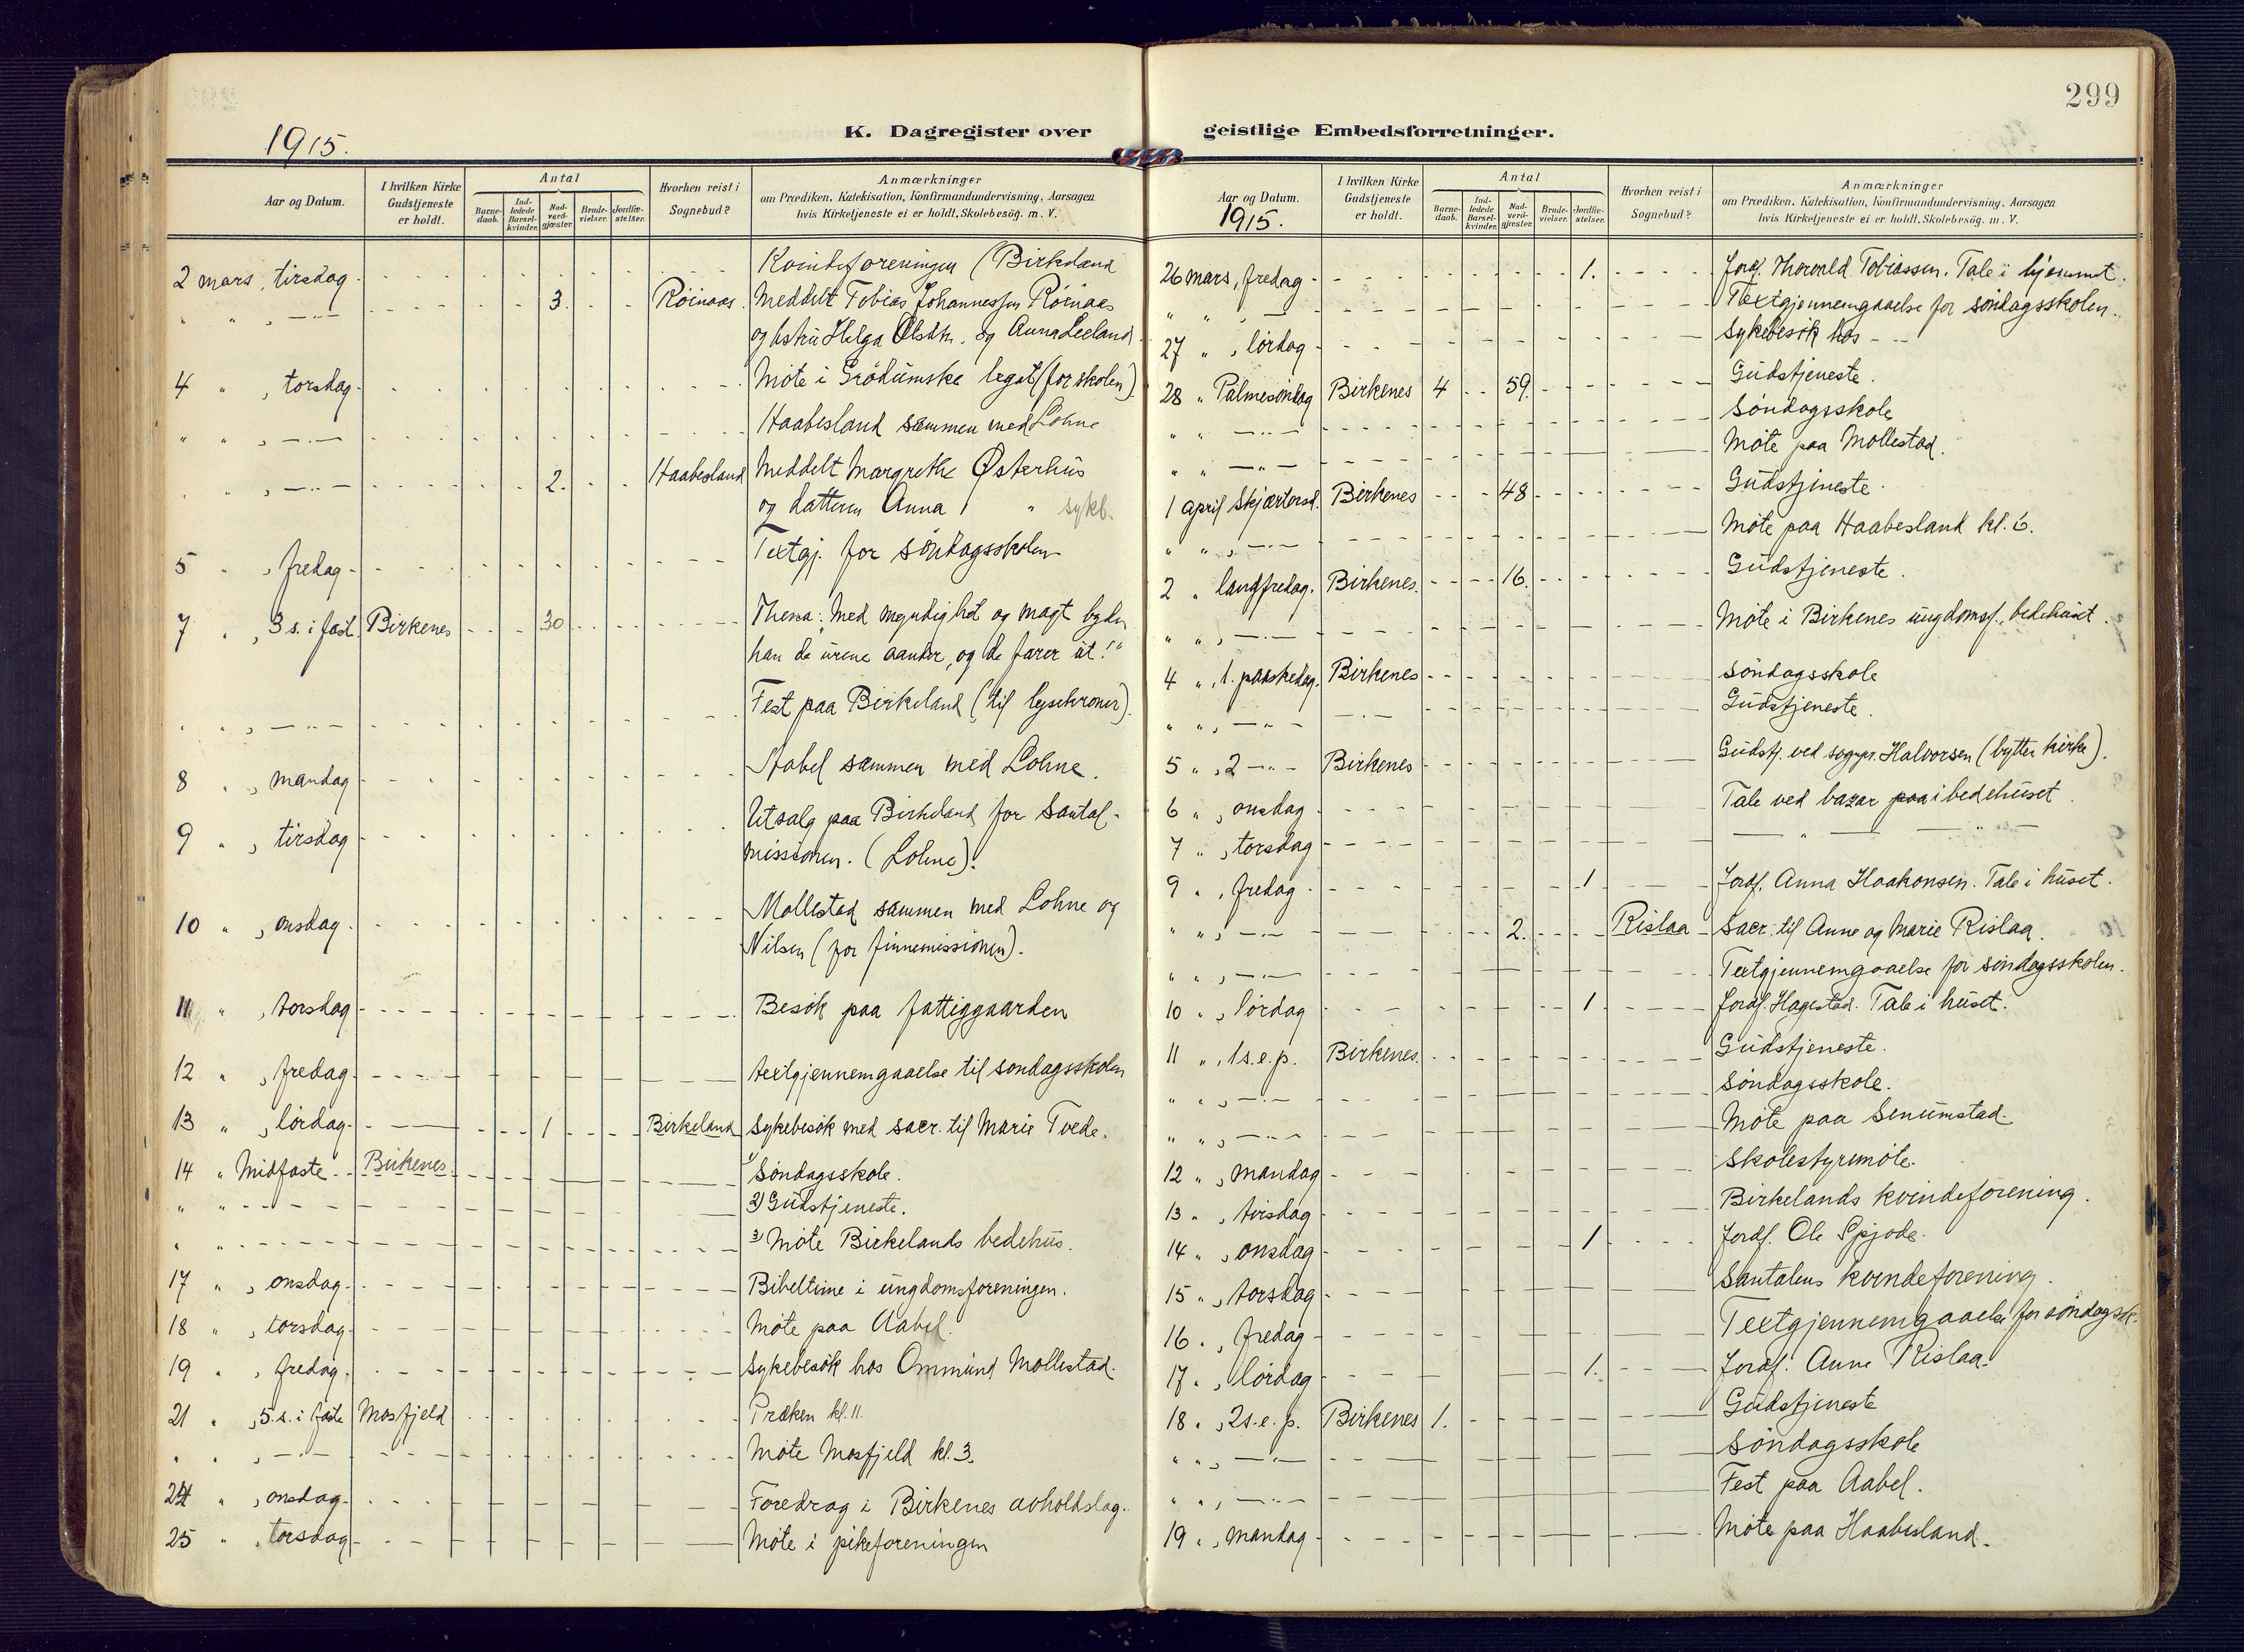 299
K. Dagregister over geistlige Embedsforretninger.
1915.
Aar og Datum.
I hvilken Kirke Gudstjeneste er holdt.
Antal
Barne-daab.
Ind-ledede Barsel-kvinder.
Nad-verd-gjæster.
Brude-vielser.
Jordfæ-stelser.
Hvorhen reist i Sognebud?
Anmærkninger
om Prædiken, Katekisation, Konfirmandundervisning, Aarsagen
hvis Kirketjeneste ei er holdt, Skolebesøg. m. V.
2 mars, tirsdag - Kvindeforeningen (Birkeland
" " , —"— 3. Røinaas. Meddelt Tobias Johannessen Røinaas
og hstru Helga Olsdtr. og Anna Leeland.
4 " , torsdag - Møte i Grødumske legat (for skolen).
" " , —"— Haabesland sammen med Lohne
" " , —"— 2. Haabesland Meddelt Margrethe Østerhus
og datteren Anna " sykb.
5 " , fredag - Textgj. for søndagsskolen
7 " , 3 s. i fast. Birkenes 30 Thema: "Med myndighet og magt byder
han de urene aander, og de farer ut!"
" " , —"— Fest paa Birkeland (til lysekroner).
8 " , mandag Aabel sammen med Lohne.
9 " , tirsdag - Utsalg paa Birkeland for Santal-
missionen. (Lohne).
10 " , onsdag - Mollestad sammen med Lohne og
Nilsen (for finnemissionen).
11 " , torsdag - Besøk paa fattiggaarden
12 " , fredag - textgjennemgaaelse til søndagsskolen
13 " , lørdag - 1 Birkeland Sykebesøk med sacr. til Marie Tvede.
14 " Midfaste - Birkenes. 1) Søndagsskole.
" " 2) Gudstjeneste.
" " 3) Møte Birkelands bedehus.
17 " , onsdag - Bibeltime i ungdomsforeningen.
18 " , torsdag - Møte paa Aabel.
19 " , fredag - Sykebesøk hos Ommund Mollestad.
21 " , 5. s. i faste Mosfjeld Præken kl. 11.
" " , —"— Møte Mosfjeld kl. 3.
24 " , onsdag - Foredrag i Birkenes avholdslag.
25 " , torsdag - Møte i pikeforeningen
Aar og Datum.
1915.
I hvilken Kirke Gudstjeneste er holdt.
Antal
Barne-daab.
Ind-ledede Barsel-kvinder.
Nad-verd-gjæster.
Brude-vielser.
Jordfæ-stelser.
Hvorhen reist i Sognebud?
Anmærkninger
om Prædiken, Katekisation, Konfirmandundervisning, Aarsagen
hvis Kirketjeneste ei er holdt, Skolebesøg. m. V.
26 mars, fredag - 1. Jordf. Thorvald Tobiassen. Tale i hjemmet.
" " , — Textgjennemgaaelse for søndagsskolen.
27 " , lørdag - Sykebesøk hos - - -
28 " Palmesøndag Birkenes 4 59. Gudstjeneste.
" " —"— Søndagsskole
" " —"— Møte paa Mollestad.
1 april Skjærtorsd. Birkenes 48 Gudstjeneste.
" " , —"— Møte paa Haabesland kl. 6.
2 " langfredag. Birkenes. 16. Gudstjeneste.
" " , —"— Møte i Birkenes ungdomsf., bedehuset.
4 " , 1. paaskedag. Birkenes Søndagsskole
" " , —"— —"— Gudstjeneste.
5 " , 2 —"— Birkenes Gudstj. ved sogpr. Halvorsen (bytter kirke).
6 " , onsdag - Tale ved bazar paa i bedehuset.
7 " , torsdag — " — — " —
9 " , fredag - 1 Jordf. Anna Haakonsen. Tale i huset.
" " , —"— 2. Rislaa Sacr. til Anne og Marie Rislaa.
" " , —"— Textgjennemgaaelse for søndagsskolen.
10 " , lørdag 1 Jordf. Hagestad. Tale i huset.
11 " , 1 s. e. p. Birkenes. Gudstjeneste.
" " , —"— Søndagsskole.
" " , —"— Møte paa Senumstad.
12 " , mandag - Skolestyremøte.
13 " , tirsdag Birkelands kvindeforening.
14 " , onsdag - 1 Jordf. Ole Spjode.
15 " , torsdag Santalens kvindeforening.
16 " , fredag - Textgjennemgaaelse for søndagssk.
17 " , lørdag 1. Jordf. Anne Rislaa.
18 " , 2 s. e. p. Birkenes 1. Gudstjeneste
" " , —"— Søndagsskole
" " , —"— Fest paa Aabel.
19 " , mandag - Møte paa Haabesland.